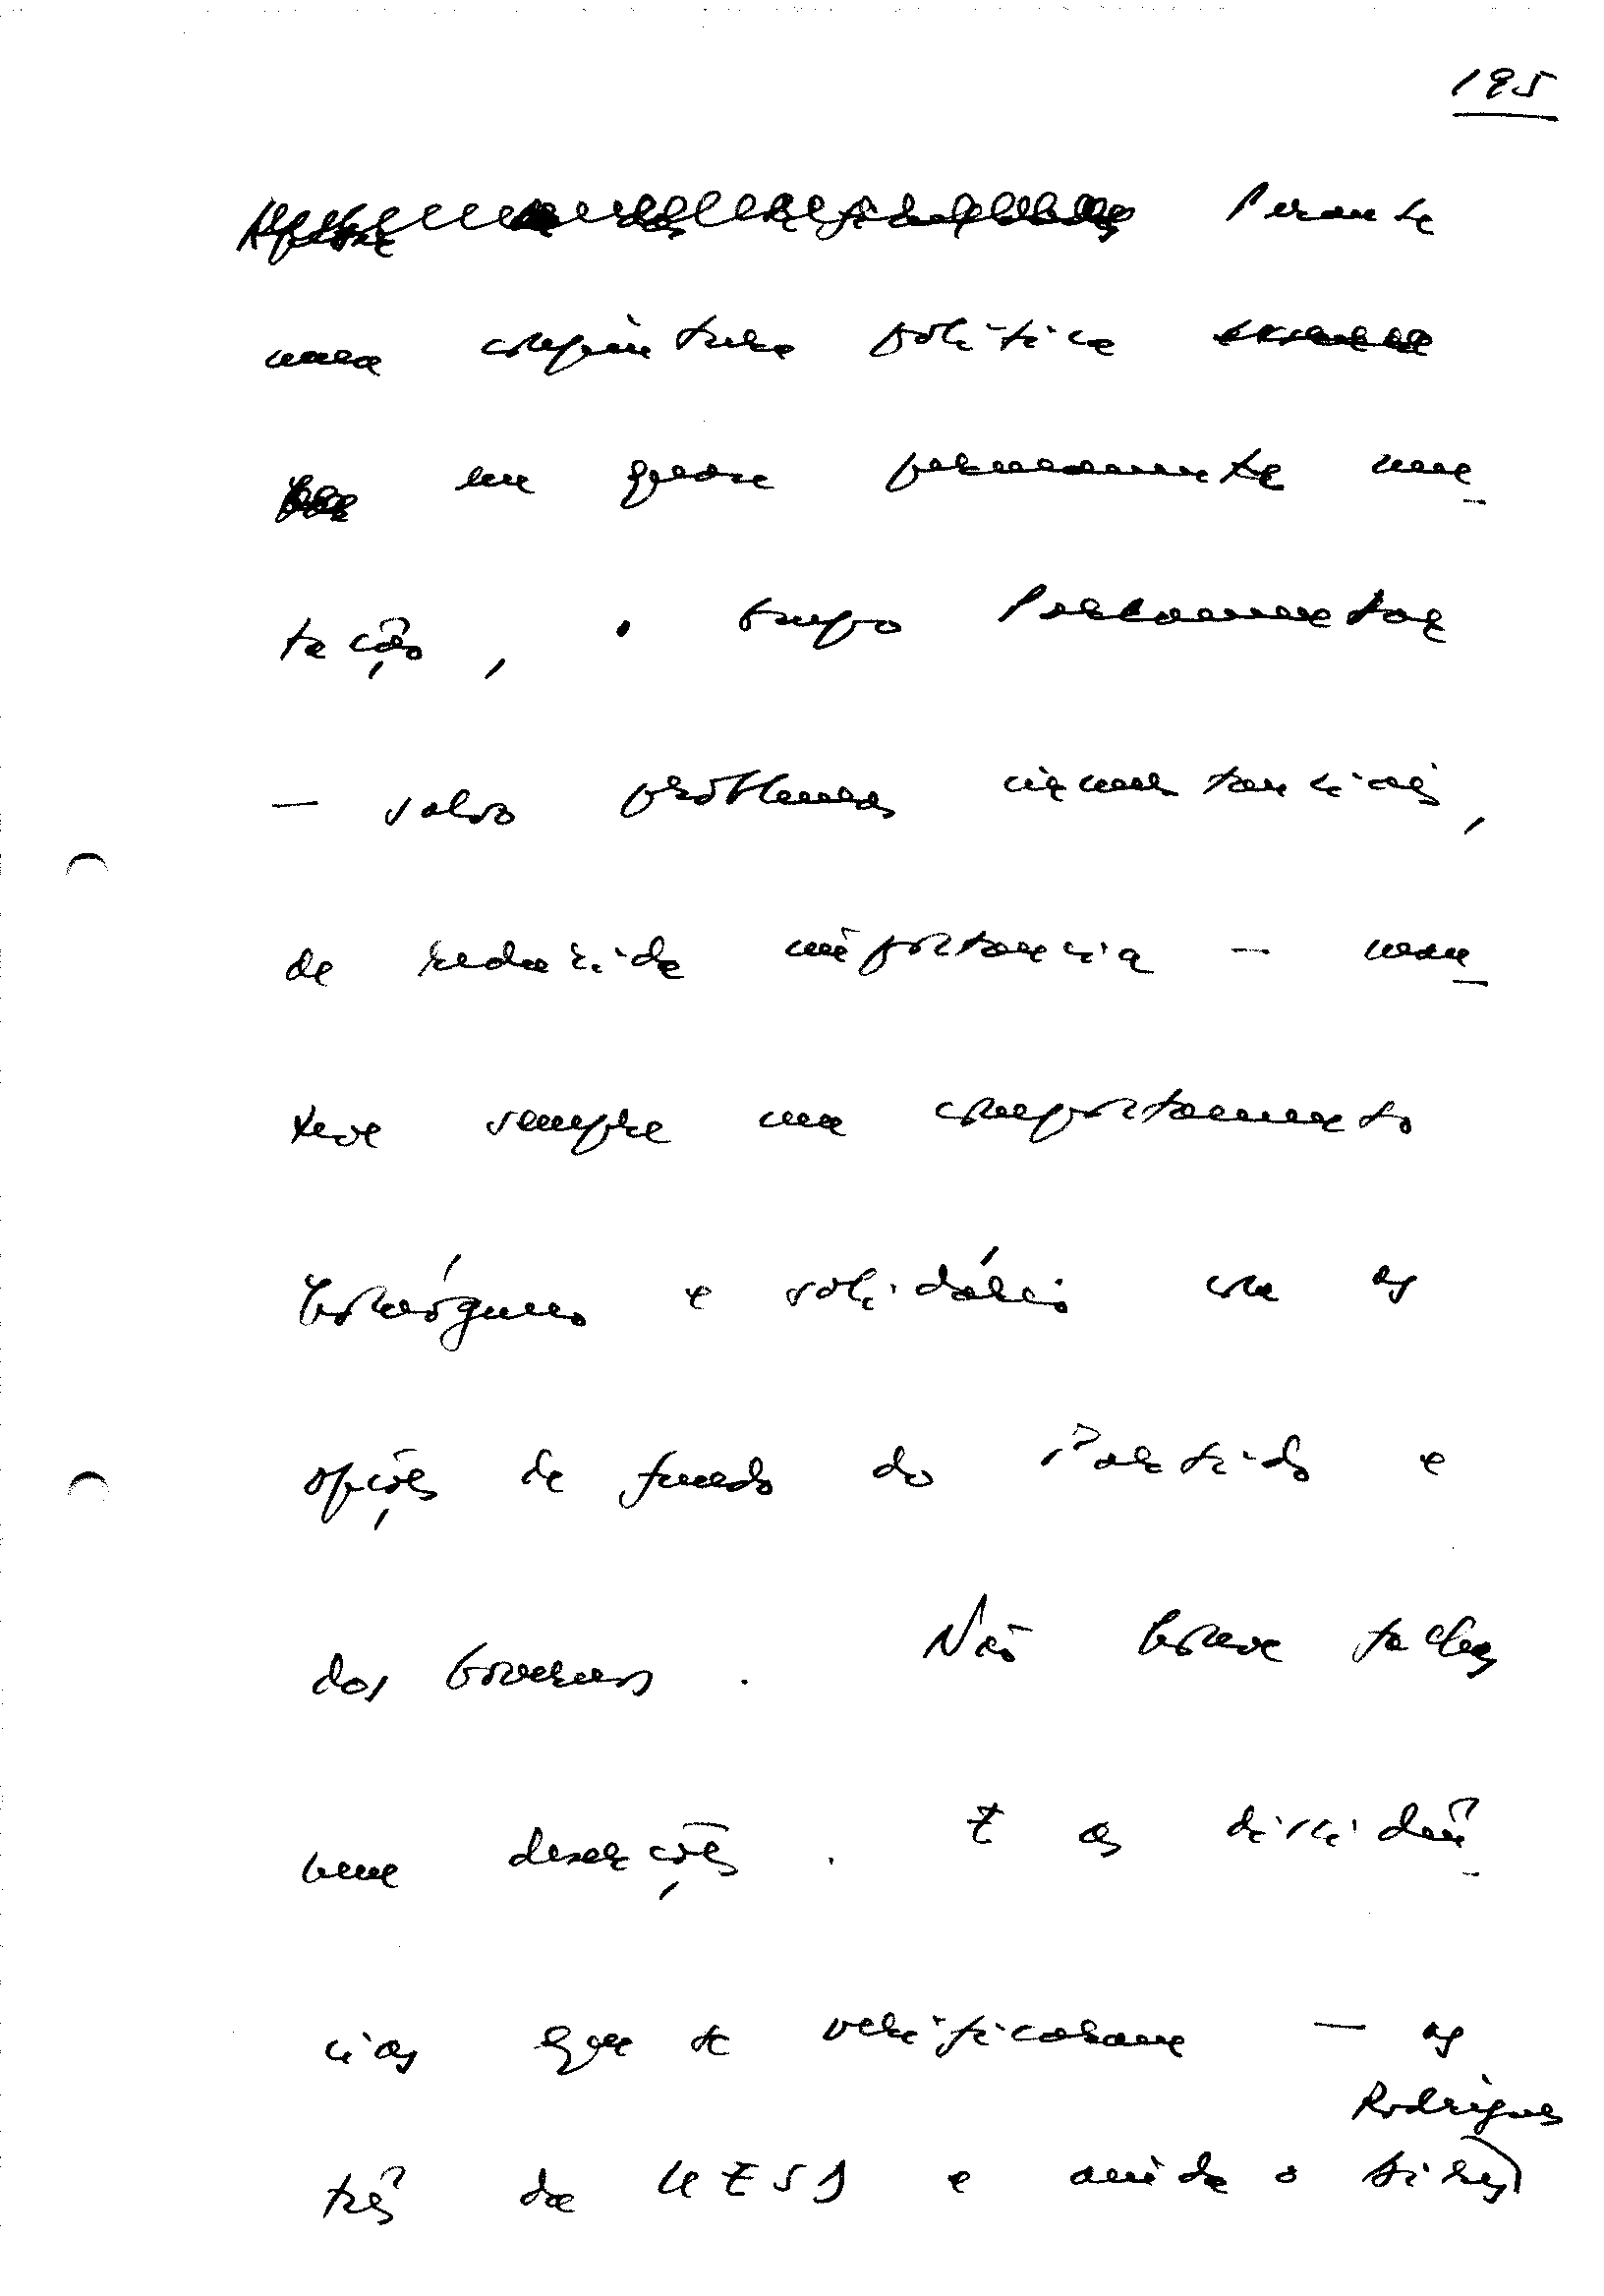 195
Perante
uma conjuntura política
em quase permanente mu-
tação, o Grupo Parlamentar
— salvo problemas circunstanciais,
de reduzida importância — man-
teve sempre um comportamento
homogéneo e solidário com as
opções de fundo do Partido e
dos Governos. Não houve facções
nem deserções. E as dissidên-
cias que se verificaram — as
Rodrigues
três da UEDS e ainda o Aires